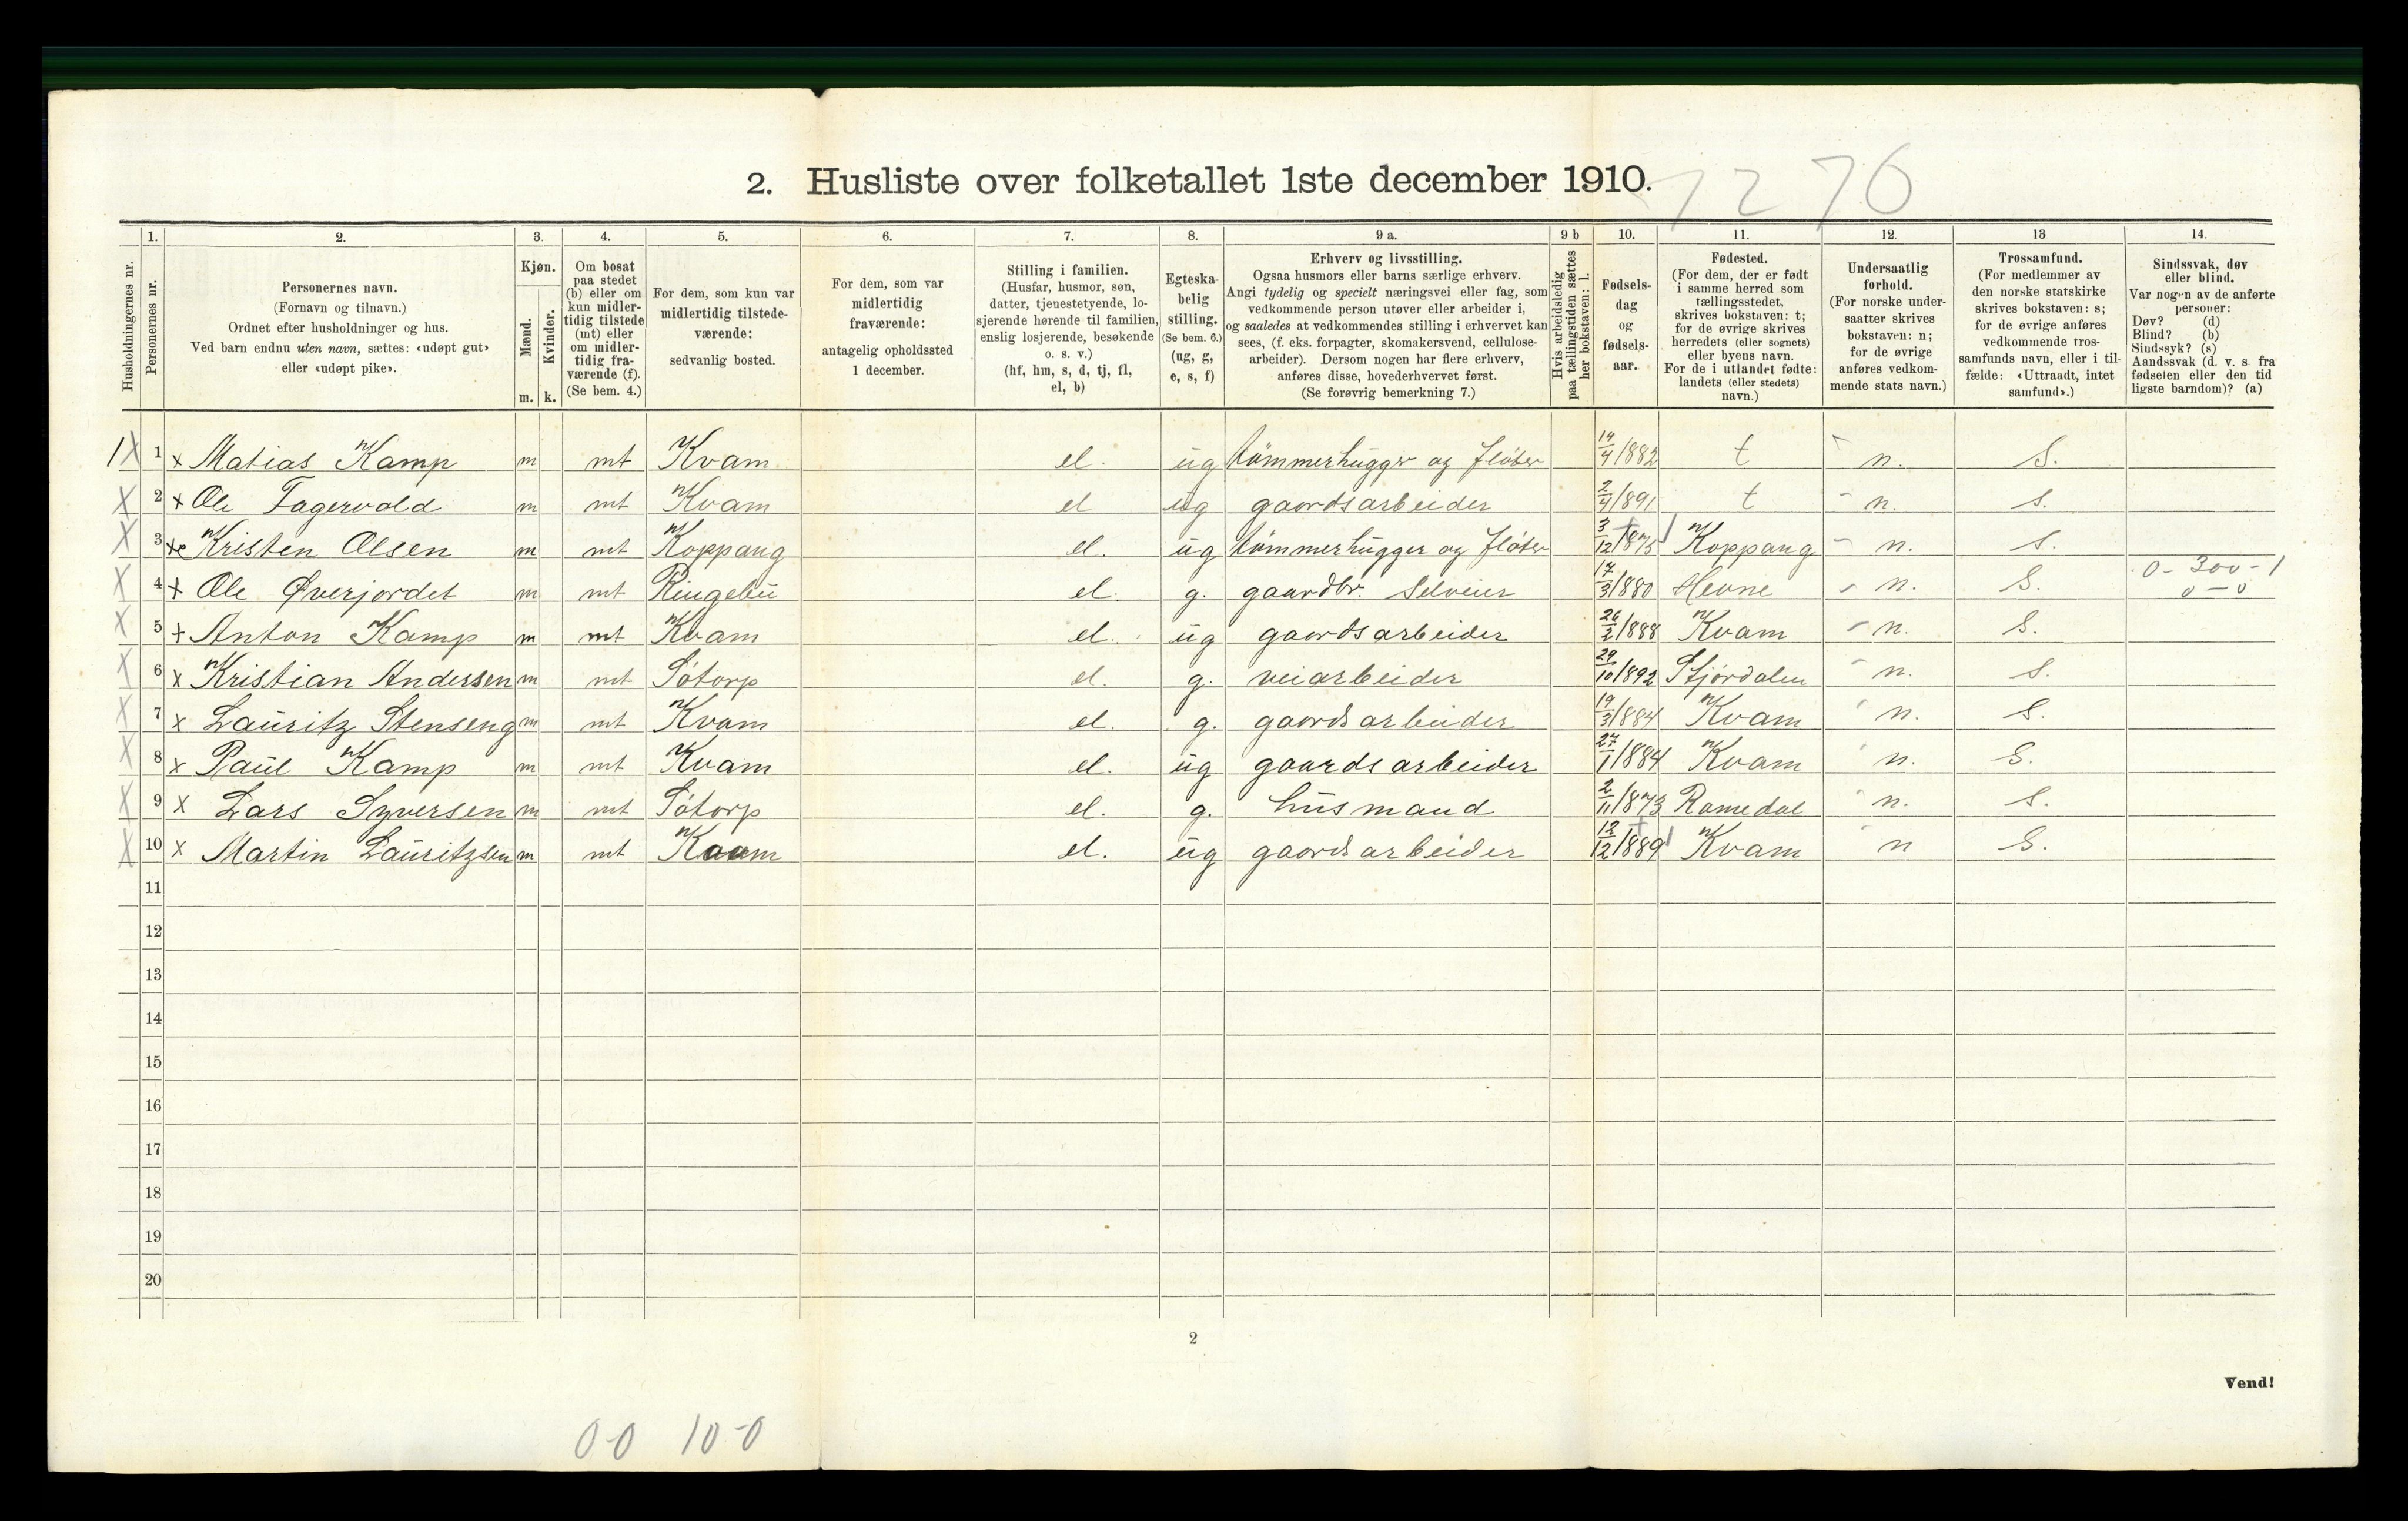 2. Husliste over folketallet 1ste december 1910.
1276
1. 2. 3. 4. 5. 6. 7. 8. 9 a. 9 b 10. 11. 12. 13 14.
Husholdningernes nr.
Personernes nr.
Personernes navn.
(Fornavn og tilnavn.)
Ordnet efter husholdninger og hus.
Ved barn endnu uten navn, sættes: «udøpt gut»
eller «udøpt pike».
Kjøn.
Mænd.
Kvinder.
m. k.
Om bosat
paa stedet
(b) eller om
kun midler-
tidig tilstede
(mt) eller
om midler-
tidig fra-
værende (f).
(Se bem. 4.)
For dem, som kun var
midlertidig tilstede-
værende:
sedvanlig bosted.
For dem, som var
midlertidig
fraværende:
antagelig opholdssted
1 december.
Stilling i familien.
(Husfar, husmor, søn,
datter, tjenestetyende, lo-
sjerende hørende til familien,
enslig losjerende, besøkende
o. s. v.)
(hf, hm, s, d, tj, fl,
el, b)
Egteska-
belig
stilling.
(Se bem. 6.)
(ug, g,
e, s, f)
Erhverv og livsstilling.
Ogsaa husmors eller barns særlige erhverv.
Angi tydelig og specielt næringsvei eller fag, som
vedkommende person utøver eller arbeider i,
og saaledes at vedkommendes stilling i erhvervet kan
sees, (f. eks. forpagter, skomakersvend, cellulose-
arbeider). Dersom nogen har flere erhverv,
anføres disse, hovederhvervet først.
(Se forøvrig bemerkning 7.)
Hvis arbeidsledig
paa tællingstiden sættes
her bokstaven: l.
Fødsels-
dag
og
fødsels-
aar.
Fødested.
(For dem, der er født
i samme herred som
tællingsstedet,
skrives bokstaven: t;
for de øvrige skrives
herredets (eller sognets)
eller byens navn.
For de i utlandet fødte:
landets (eller stedets)
navn.)
Undersaatlig
forhold.
(For norske under-
saatter skrives
bokstaven: n;
for de øvrige
anføres vedkom-
mende stats navn.)
Trossamfund.
(For medlemmer av
den norske statskirke
skrives bokstaven: s;
for de øvrige anføres
vedkommende tros-
samfunds navn, eller i til-
fælde: «Uttraadt, intet
samfund».)
Sindssvak, døv
eller blind.
Var nogen av de anførte
personer:
Døv? (d)
Blind? (b)
Sindssyk? (s)
Aandssvak (d. v. s. fra
fødselen eller den tid
ligste barndom)? (a)
1 X 1 x Matias Kamp m mt Kvam el. ug tømmerhugger og fløter 14/4/1882 t n. S.
X 2 x Ole Fagervold m mt Kvam el ug gaardsarbeider 2/4/1891 t n. S.
X 3 x Kristen Olsen m mt Koppang el. ug tømmerhugger og fløter 3/12/1875 Koppang n. S.
X 4 x Ole Øverjordet m mt Ringebu el. g. gaardbr. Selveier 17/3/1880 Hevne n. S. 0-300-1
0-0
X 5 x Anton Kamp m mt Kvam el. ug gaardsarbeider 26/2/1888 Kvam n. S.
X 6 x Kristian Andersen m mt Sötorp el. g. veiarbeider 29/10/1892 Stjørdalen n. S.
X 7 x Lauritz Stenseng m mt Kvam el. g. gaardsarbeider 19/3/1884 Kvam n. S.
X 8 x Paul Kamp m mt Kvam el. ug gaardsarbeider 27/1/1884 Kvam n. S.
X 9 x Lars Syversen m mt Sötorp el. g. husmand 2/11/1873 Romedal n. S.
X 10 x Martin Lauritzsen m mt Kvam el. ug gaardsarbeider 12/12/1889 Kvam n S.
11
12
13
14
15
16
17
18
19
20
2
Vend!
0-0 10-0